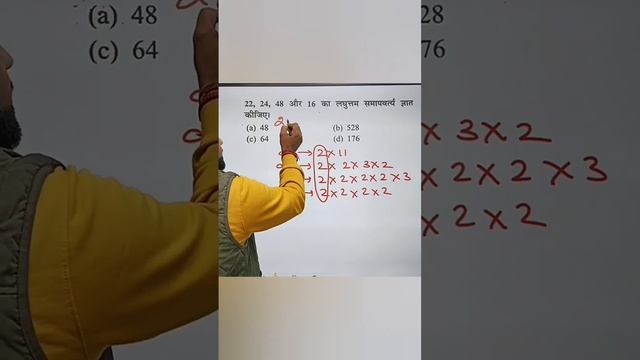 (a) 48
28
(c) 64
76
22, 24, 48 और 16 का लघुत्तम समापवर्त्य ज्ञात
कीजिए।
2
(a) 48 (b) 528
(c) 64 (d) 176
→ 2 × 11
→ 2 × 2 × 3 × 2
→ 2 × 2 × 2 × 2 × 3
→ 2 × 2 × 2 × 2
× 3 × 2
× 2 × 2 × 3
× 2 × 2